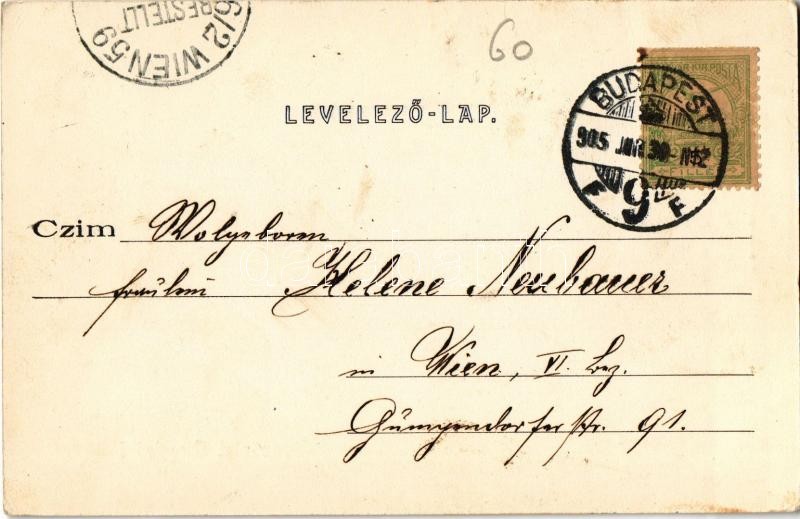 6/2 WIEN 59
BESTELLT
60
MAGY. KIR. POSTA
FILLÉR
BUDAPEST
905 30
9
F F
LEVELEZŐ-LAP.
Czim Wolgeboren
Fräulein Helene Neubauer
in Wien, VI. Bez.
Gumpendorferstr. 91.